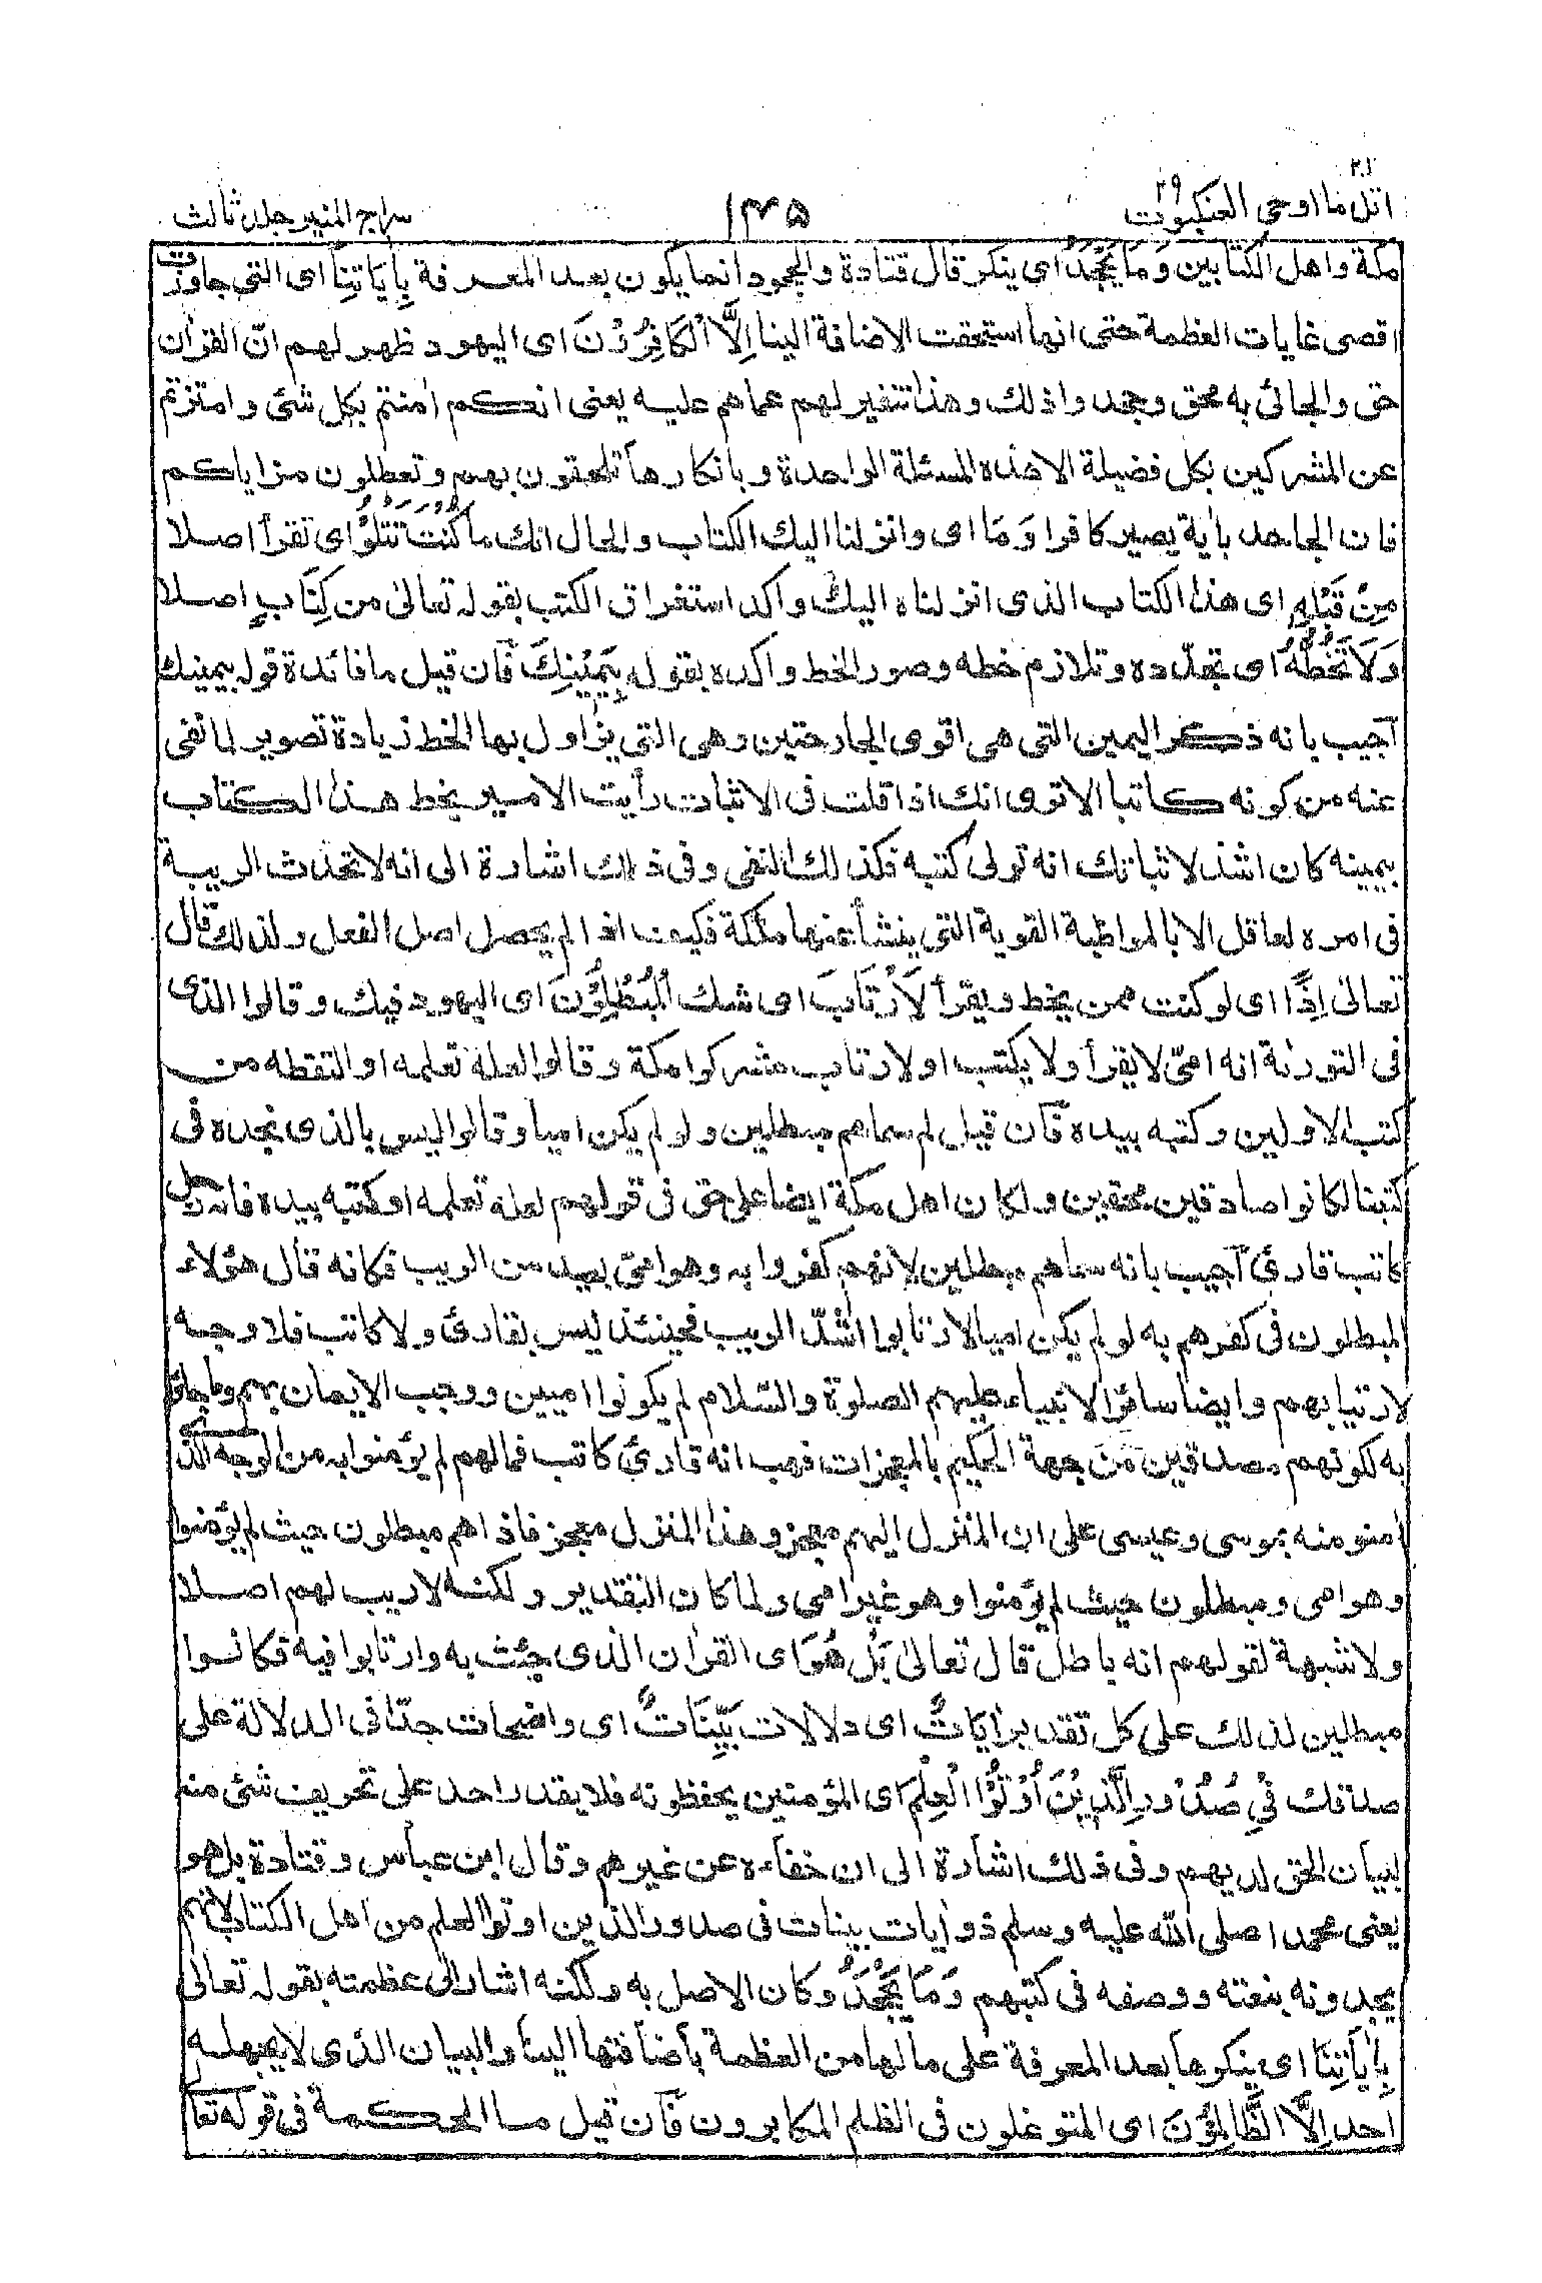 اتل ما اوحی العنکبوت ٢٩
١٤٥
سراج المنیر جلد ثالث
مکة واهل الکتابین وَمَا یَجْحَدُ ای ینکر قال قتادة والجحود انما یکون بعد المعرفة بِاٰیَاتِنَا ای التی جاوزت
اقصی غایات العظمة حتی انها استحقت الاضافة الینا اِلَّا الْکَافِرُوْنَ ای الیهود ظهر لهم انّ القرآن
حق والجائی به محق وجحدوا ذلك وهذا تنفیر لهم عما هم علیه یعنی انکم اٰمنتم بکل شئ وامتزتم
عن المشرکین بکل فضیلة الا هذه المسئلة الواحدة وبانکارها تلحقون بهم وتعطلون مزایاکم
فان الجاحد باٰیة یصیر کافرا وَمَا ای وانزلنا الیك الکتاب والحال انك ما کُنْتَ تَتْلُوْا ای تقرأ اصلا
مِنْ قَبْلِهٖ ای هذا الکتاب الذی انزلناه الیك واکد استغراق الکتب بقوله تعالیٰ من کِتَابٍ اصلا
وَلَا تَخُطُّهُ ای تجدّده وتلازم خطه وصور الخط واکده بقوله بِیَمِیْنِكَ فآن قیل ما فائدة قوله بیمینك
آجیب بانه ذکر الیمین التی هی اقوی الجارحتین وهی التی یزاول بها الخط زیادة تصویر لما نفی
عنه من کونه کاتبا الا تری انك اذا قلت فی الاثبات رأیت الامیر یخط هذا الکتاب
بیمینه کان اشد لاثباتك انه تولی کتبه فکذلك النفی وفی ذلك اشارة الی انه لا تحدث الریبة
فی امره لعاقل الا بالمواظبة القویة التی ینشأ عنها ملکة فکیف اذا لم یحصل اصل الفعل ولذلك قال
تعالیٰ اِذًا ای لو کنت ممن یخط ویقرأ لَارْتَابَ ای شك الْمُبْطِلُوْنَ ای الیهود فیك وقالوا الذی
فی التورٰىة انه امیّ لا یقرأ ولا یکتب او لارتاب مشرکوا مکة وقالوا لعله تعلمه او التقطه من
کتب الاولین وکتبه بیده فآن قیل لم سماهم مبطلین ولو لم یکن امیا وقالوا لیس بالذی نجده فی
کتبنا لکانوا صادقین محقین ولکان اهل مکة ایضا علی حق فی قولهم لعله تعلمه او کتبه بیده فانه رجل
کاتب قارئ آجیب بانه سماهم مبطلین لانهم کفروا به وهو امیّ بعید من الریب فکانه قال هؤلاء
المبطلون فی کفرهم به لو لم یکن امیا لارتابوا اشدّ الریب فحینئذ لیس بقارئ ولا کاتب فلا وجه
لارتیابهم وایضا سائر الانبیاء علیهم الصلوة والسّلام لم یکونوا امیین ووجب الایمان بهم وبما جاؤا
به لکونهم مصدقین من جهة الحکیم بالمعجزات فهب انه قارئ کاتب فما لهم لم یؤمنوا به من الوجه الذی
اٰمنو منه بموسی وعیسی علی ان المنزل الیهم معجز وهذا المنزل معجز فاذا هم مبطلون حیث لم یؤمنوا
وهو امی ومبطلون حیث لم یؤمنوا وهو غیر امی ولما کان التقدیر ولکنه لا ریب لهم اصلا
ولا شبهة لقولهم انه باطل قال تعالیٰ بَلْ هُوَ ای القراٰن الذی جئت به وارتابوا فیه فکانوا
مبطلین لذلك علی کل تقدیر اٰیَاتٌ ای دلالات بَیِّنَاتٌ ای واضحات جدّا فی الدلالة علی
صدقك فِیْ صُدُوْرِ الَّذِیْنَ اُوْتُوا الْعِلْمَ ای المؤمنین یحفظونه فلا یقدر احد علی تحریف شئ منه
لبیان الحق لدیهم وفی ذلك اشارة الی ان خفاءه عن غیرهم وقال ابن عباس وقتادة بل هو
یعنی محمدا صلی الله علیه وسلم ذو اٰیات بینات فی صدور الذین اوتوا العلم من اهل الکتاب لانهم
یجدونه بنعته ووصفه فی کتبهم وَمَا یَجْحَدُ وکان الاصل به ولکنه اشار الی عظمته بقوله تعالیٰ
بِاٰیَاتِنَا ای ینکرها بعد المعرفة علی ما لها من العظمة باضافتها الینا والبیان الذی لا یجهله
احد اِلَّا الظَّالِمُوْنَ ای المتوغلون فی الظلم المکابرون فآن قیل ما الحکمة فی قوله تعا